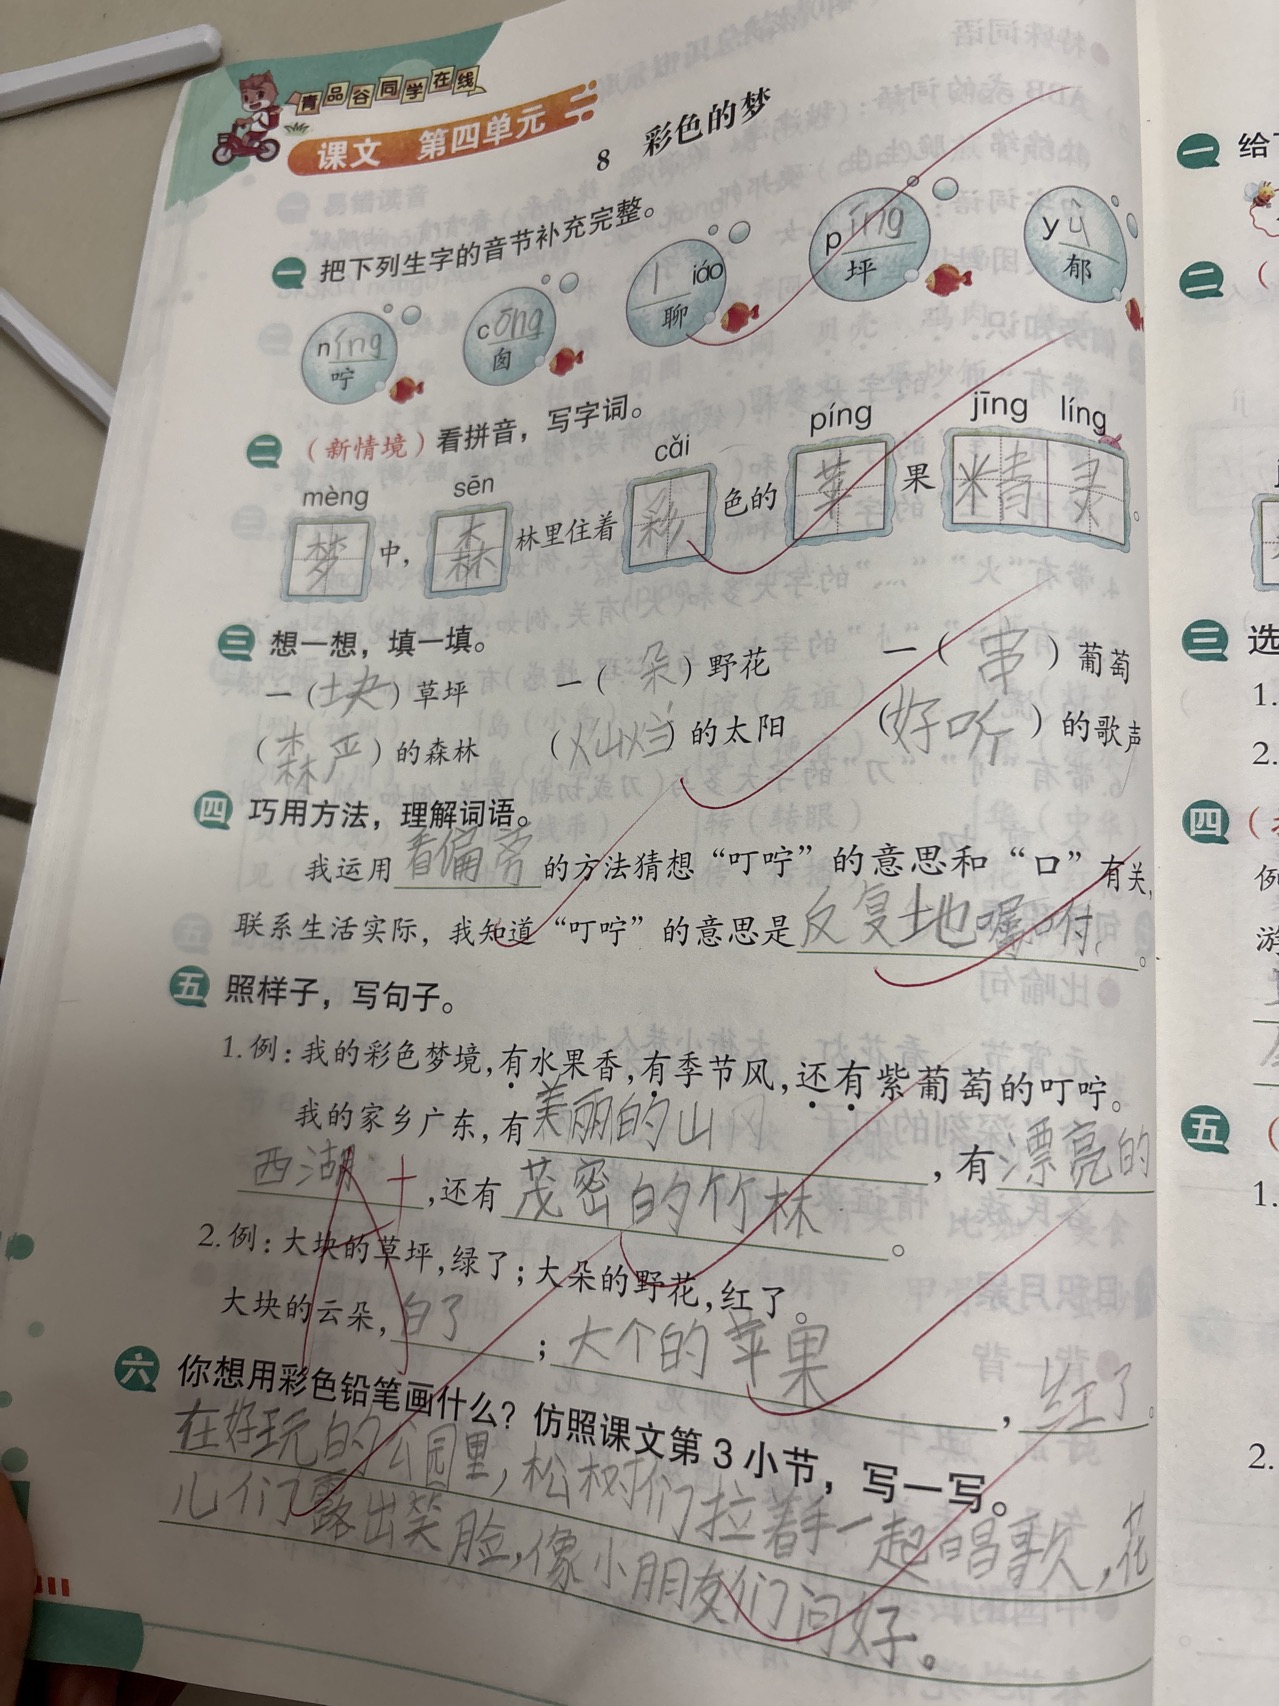 青品谷同学在线
课文 第四单元
8 彩色的梦
一 把下列生字的音节补充完整。
níng cōng liáo píng yù
咛 囱 聊 坪 郁
二 (新情境)看拼音,写字词。
mèng sēn cǎi píng jīng líng
梦中,森林里住着彩色的苹果精灵。
三 想一想,填一填。
一(块)草坪 一(朵)野花 一(串)葡萄
(森严)的森林 (灿烂)的太阳 (好听)的歌声
四 巧用方法,理解词语。
我运用看偏旁的方法猜想“叮咛”的意思和“口”有关,
联系生活实际,我知道“叮咛”的意思是反复地嘱咐。
五 照样子,写句子。
1.例:我的彩色梦境,有水果香,有季节风,还有紫葡萄的叮咛。
我的家乡广东,有美丽的山冈,有漂亮的
西湖,还有茂密的竹林。
2.例:大块的草坪,绿了;大朵的野花,红了。
大块的云朵,白了;大个的苹果,红了。
六 你想用彩色铅笔画什么?仿照课文第3小节,写一写。
在好玩的公园里,松树们拉着手一起唱歌,花
儿们露出笑脸,像小朋友们问好。
A+
一 给
二 (
三 选
1.
2.
四 (
例
游
五 (
1.
2.